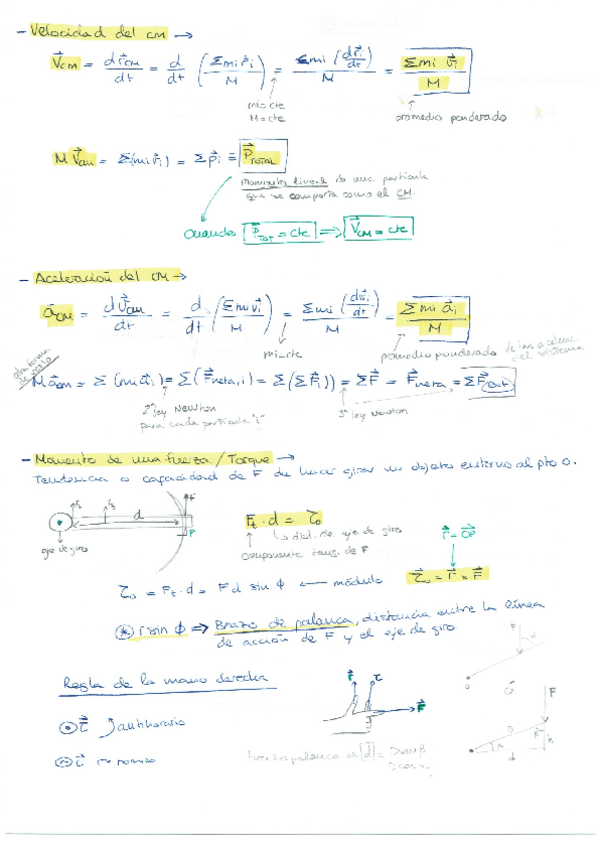 - Velocidad del CM →
V⃗cm = dr⃗cm/dt = d/dt (Σmi r⃗i / M) = Σmi (dr⃗i/dt) / M = Σmi v⃗i / M
mi=cte
M=cte
promedio ponderado
M V⃗cm = Σ(mi v⃗i) = Σp⃗i ≡ P⃗TOTAL
Momento lineal de una partícula
que se comporta como el CM.
Cuando P⃗TOT = cte ⇒ V⃗CM = cte
- Aceleración del CM →
a⃗CM = dV⃗cm/dt = d/dt (Σmi v⃗i / M) = Σmi (dv⃗i/dt) / M = Σmi a⃗i / M
mi=cte
promedio ponderado de las acelerac. del sistema
otra forma de verlo
M a⃗cm = Σ(mi a⃗i) = Σ(F⃗neta,i) = Σ(ΣF⃗i)) = ΣF⃗ = F⃗neta = ΣF⃗ext
2ª ley Newton
para cada partícula "i"
3ª ley Newton
- Momento de una fuerza / Torque →
Tendencia o capacidad de F de hacer girar un objeto entorno al pto O.
F
d
P
eje de giro
Ft · d = τo
dist. de eje de giro
componente tang. de F
r⃗ = OP⃗
τo = Ft · d = F d sin ϕ ← módulo
τ⃗o = r⃗ × F⃗
* r sin ϕ ⇒ Brazo de palanca, distancia entre la línea
de acción de F y el eje de giro.
Regla de la mano derecha
r⃗ τ⃗
F⃗
τ⃗ } antihorario
τ⃗ horario
F
D
β
h
α
d
brazo palanca |d⃗| = D sen β
D cos α